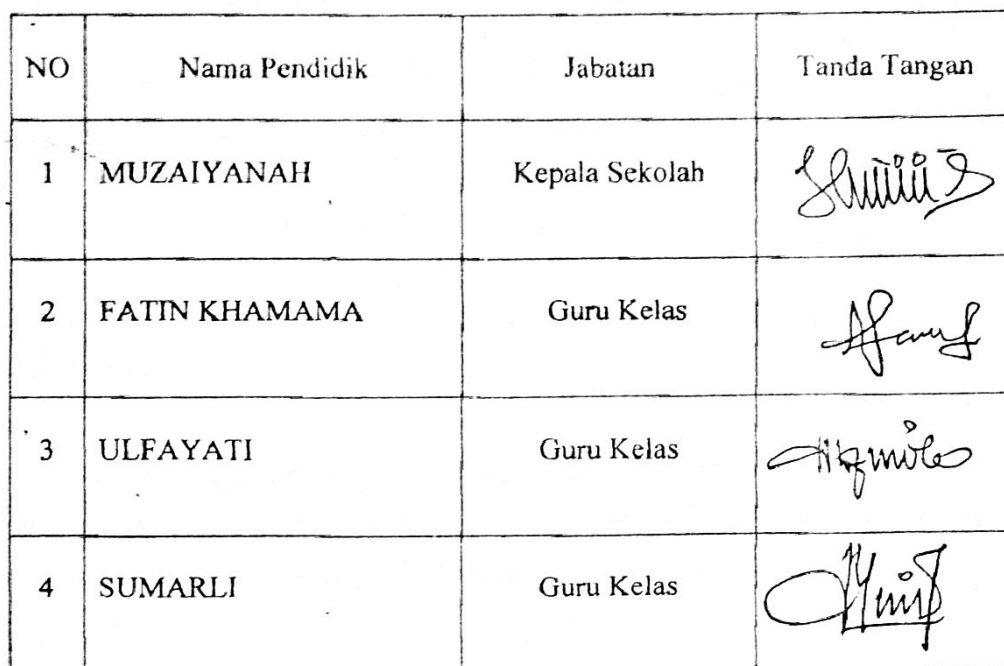 NO Nama Pendidik Jabatan Tanda Tangan
1 MUZAIYANAH Kepala Sekolah
2 FATIN KHAMAMA Guru Kelas
3 ULFAYATI Guru Kelas
4 SUMARLI Guru Kelas